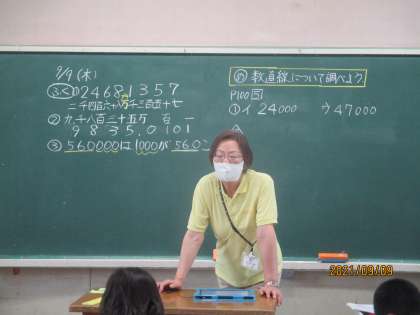 9/9(木)
㋱ 数直線について調べよう。
ふく①02468 1357
二千四百六十八万千三百五十七
P100 図
①イ 24000 ウ 47000
②九千八百三十五万 百 一
9 8 3 5.0 1 0 1
③560000は1000が560こ
2021/09/09